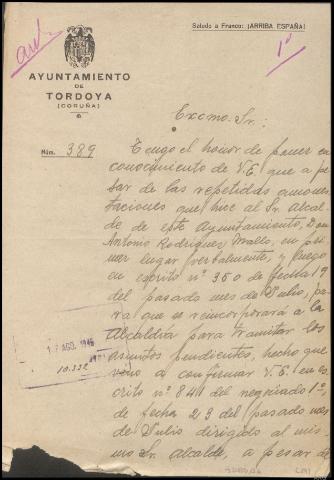 Saludo a Franco: ¡ARRIBA ESPAÑA!
AYUNTAMIENTO
DE
TORDOYA
(CORUÑA)
Núm. 389
Excmo. Sr.:
Tengo el honor de poner en
conocimiento de V.E. que a pe-
sar de las repetidas amones-
taciones que hice al Sr. Alcal-
de de este Ayuntamiento, Don
Antonio Rodríguez Mallo, en pri-
mer lugar verbalmente, y luego
en escrito nº 350 de fecha 19
del pasado mes de Julio, pa-
ra que se reincorporará a la
Alcaldía para tramitar los
asuntos pendientes, hecho que
vino a confirmar V.E. en es-
crito nº 841 del negociado 1º,
de fecha 23 del pasado mes
de Julio dirigido al mis-
mo Sr. Alcalde, a pesar de
AGO. 1946
10.332